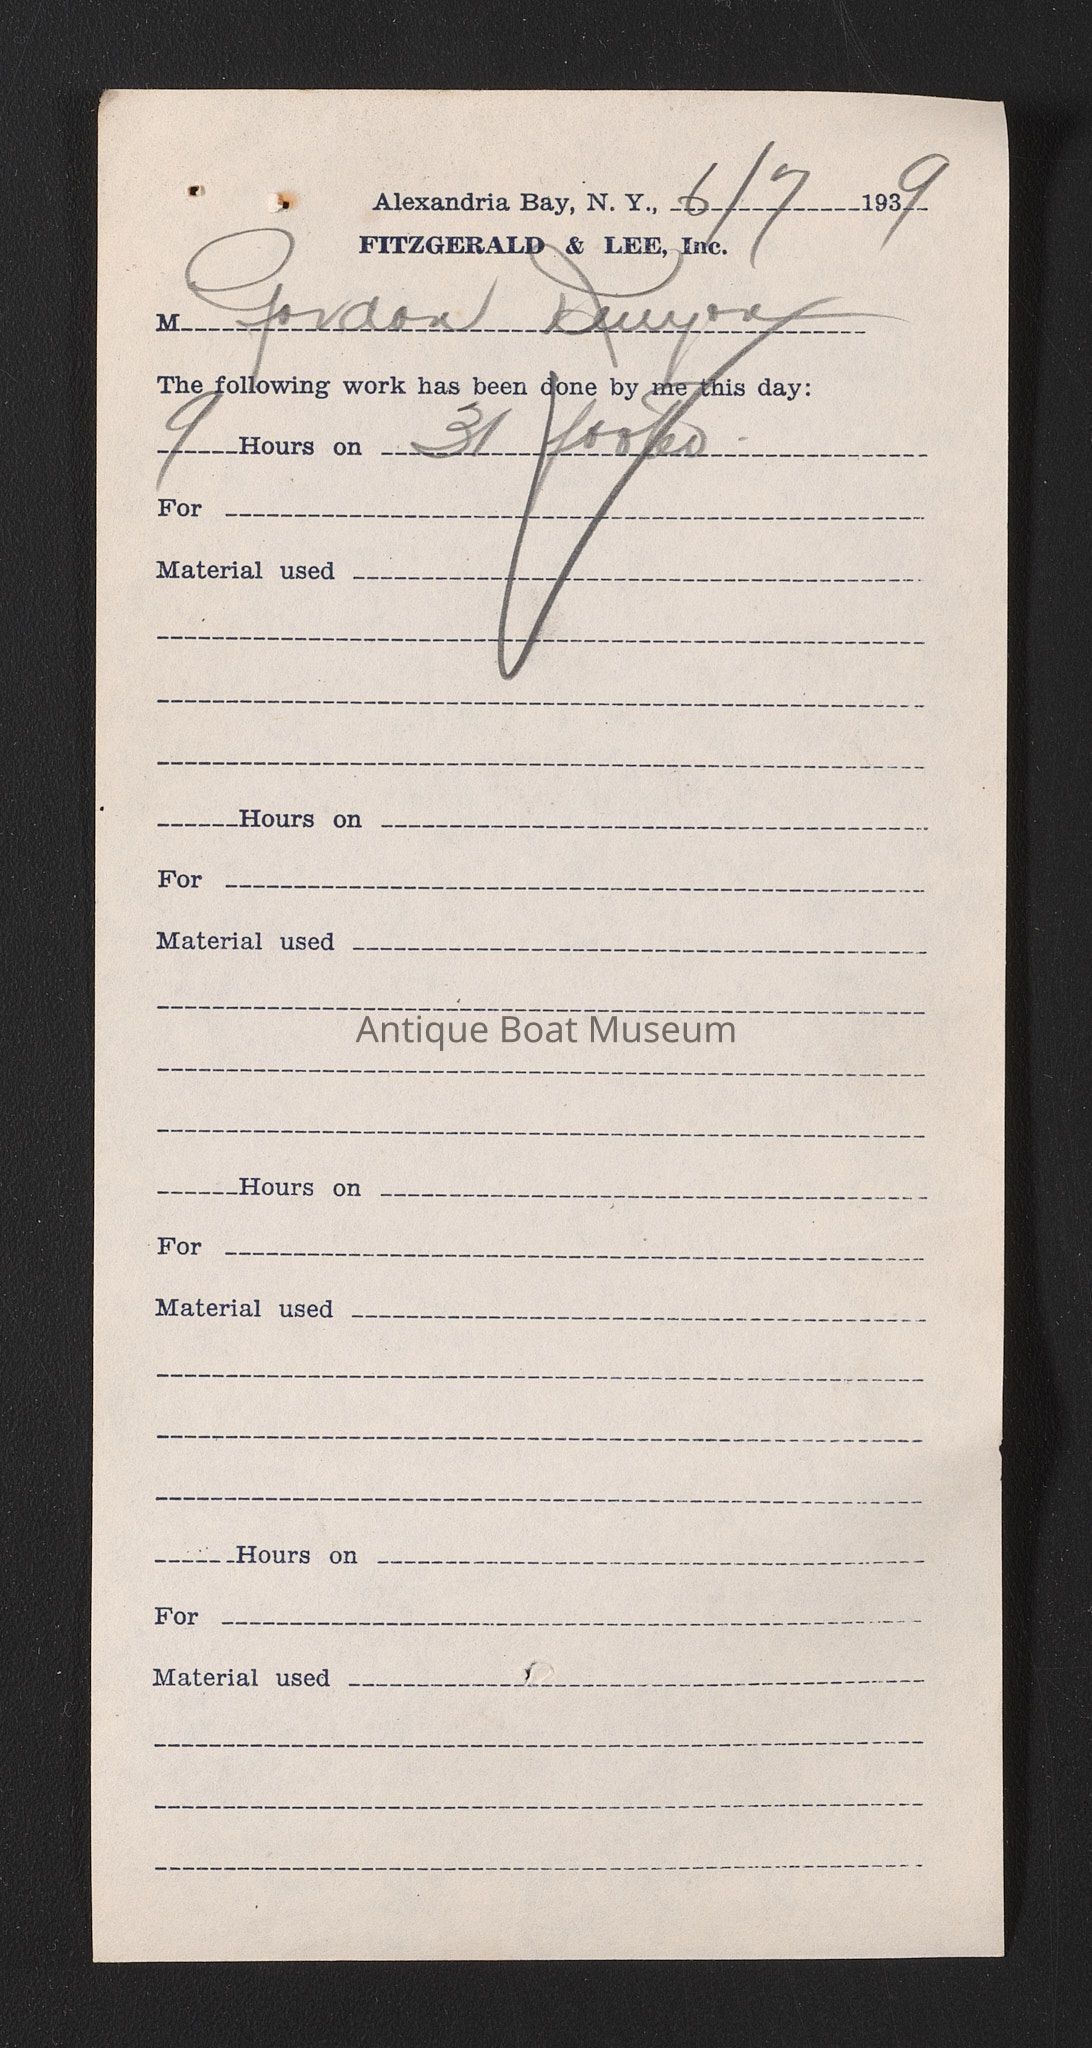 Alexandria Bay, N. Y., 6/7 1939
FITZGERALD & LEE, Inc.
M Gordon Runyon
The following work has been done by me this day:
9 Hours on 31
For
Material used
Hours on
For
Material used
Antique Boat Museum
Hours on
For
Material used
Hours on
For
Material used